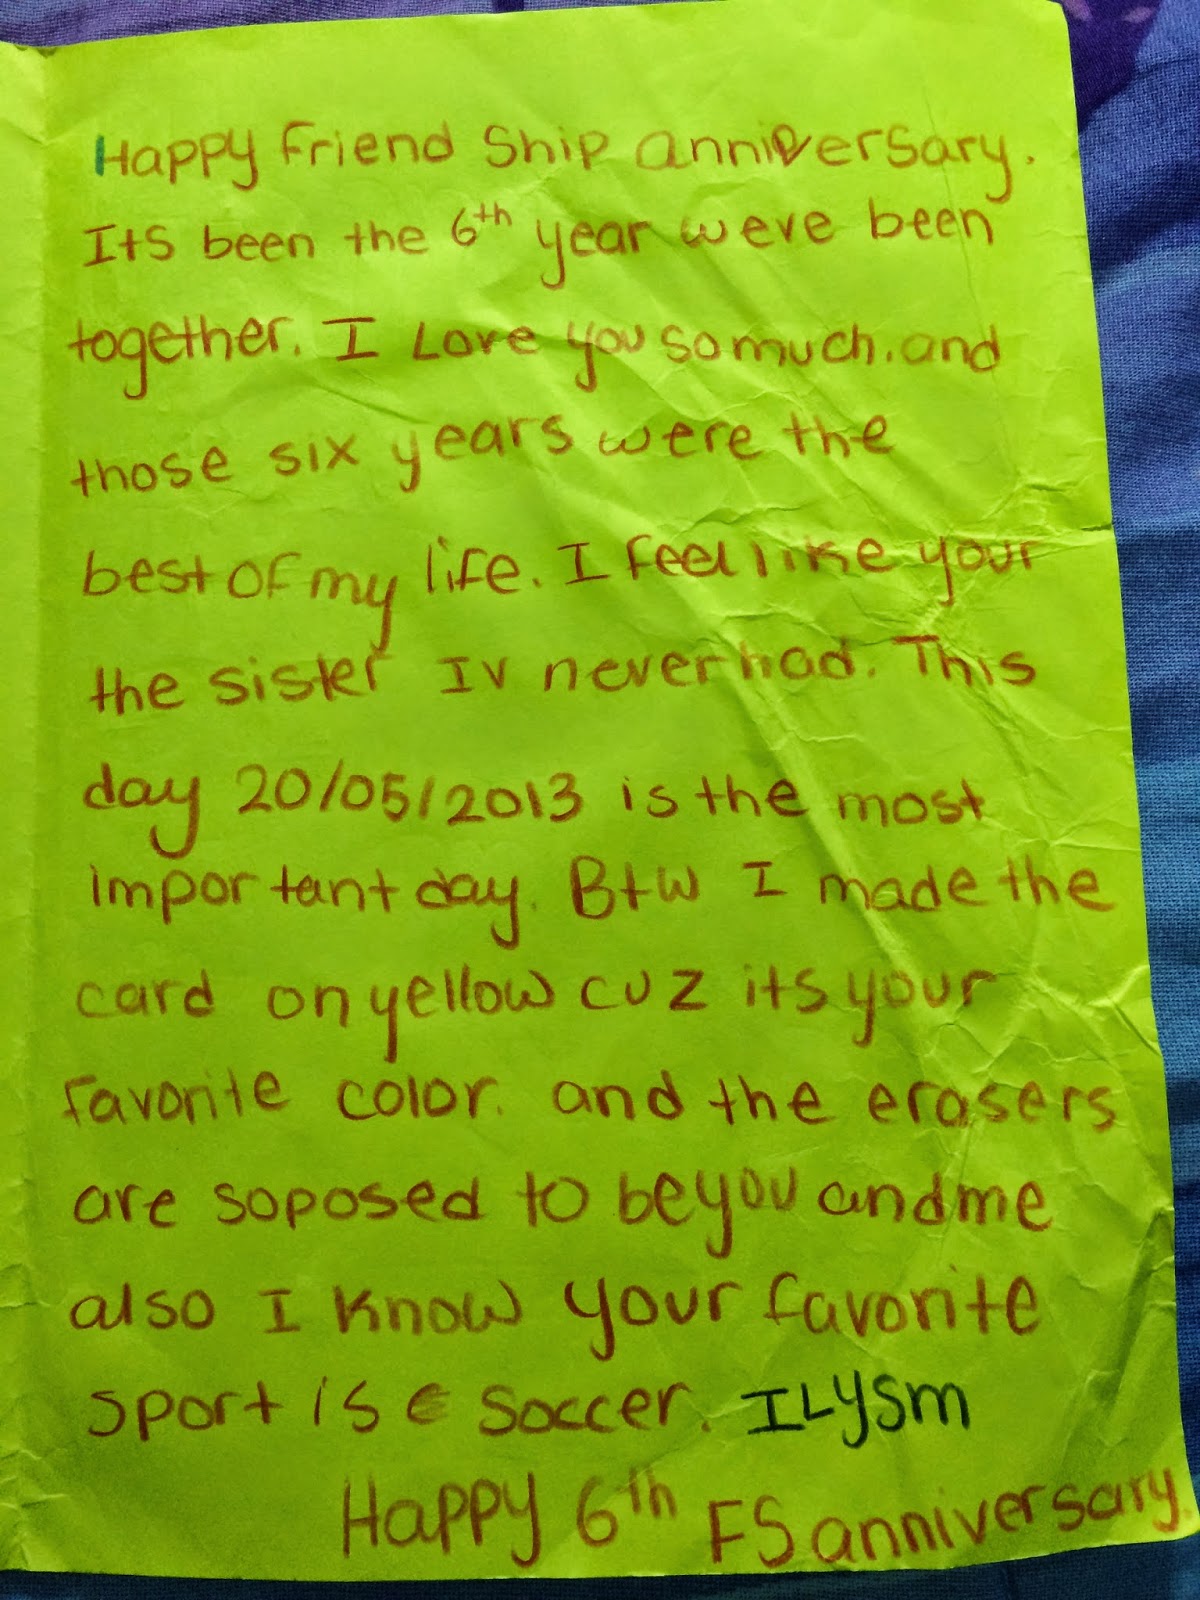 Happy Friend Ship anniversary.
Its been the 6th year weve been
together. I Love you so much. and
those six years were the
best of my life. I feel like your
the sister Iv never had. This
day 20/05/2013 is the most
important day. Btw I made the
card on yellow cuz its your
favorite color. and the erasers
are soposed to be you and me
also I know your favorite
sport is soccer. ILYSm
Happy 6th FS anniversary.